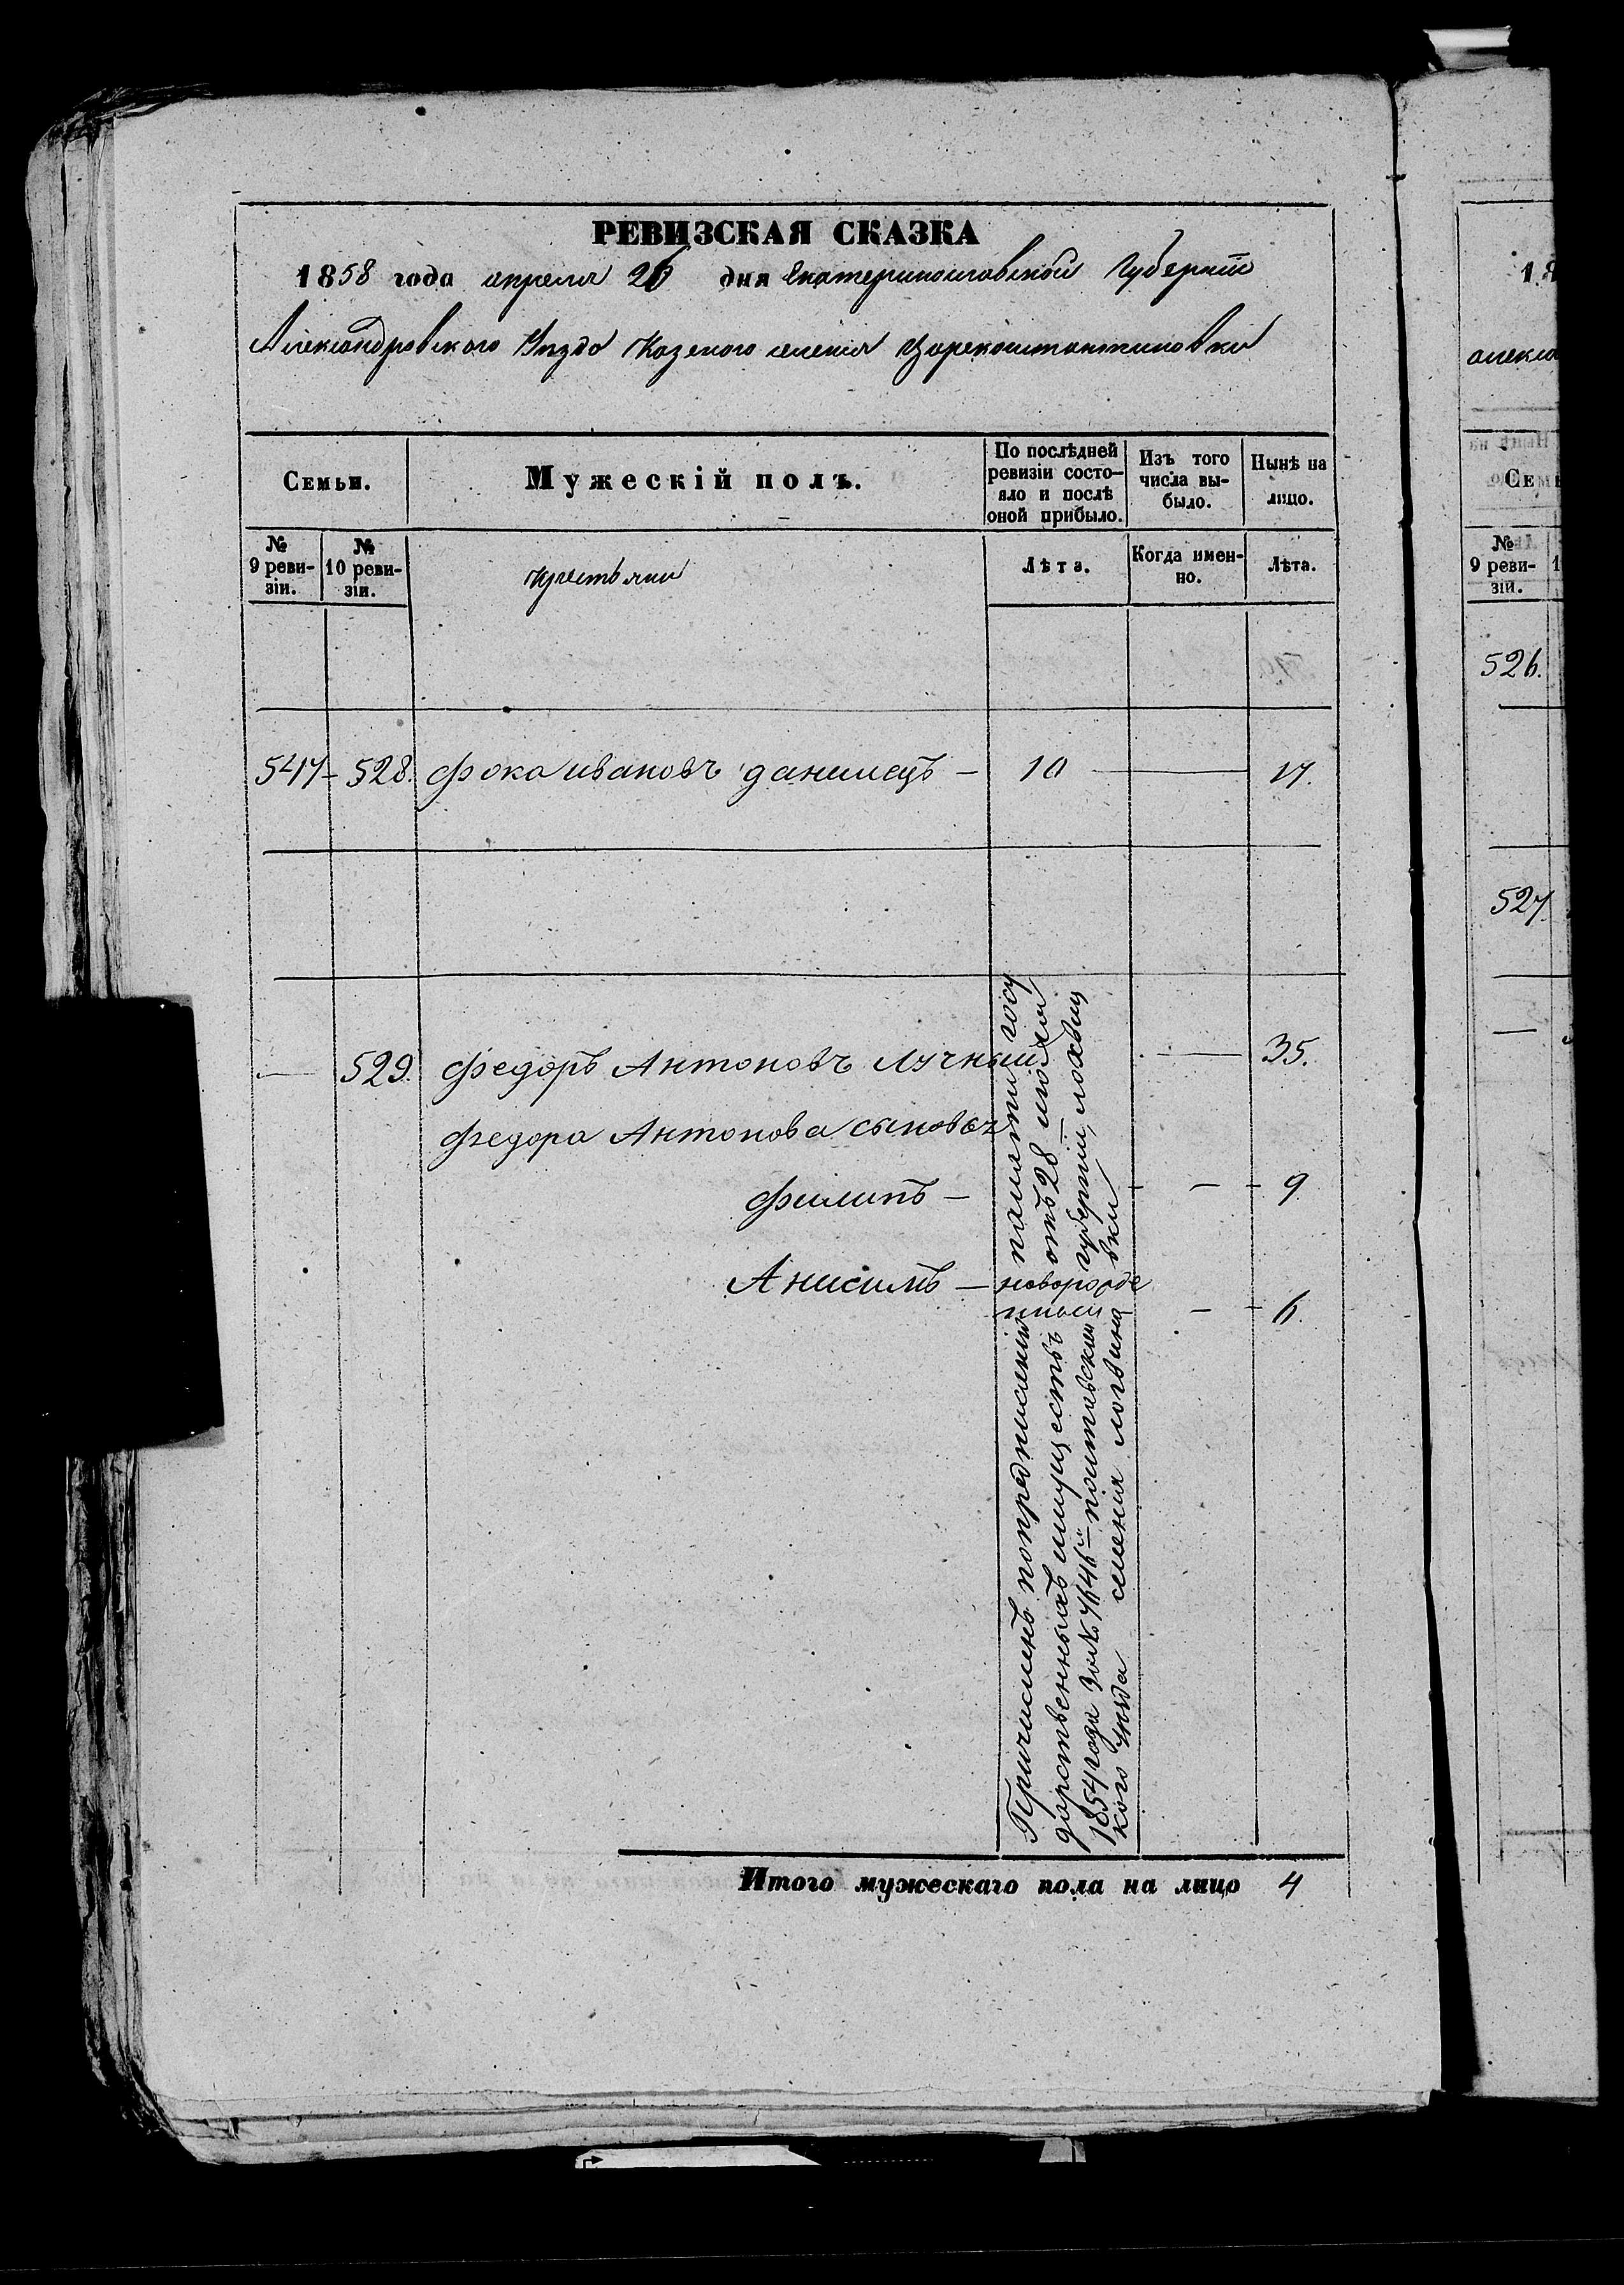 РЕВИЗСКАЯ СКАЗКА
1858 года апреля 26 дня Екатеринославской Губернии
Александровского Уезда Казеного селения Цареконстантиновки
Семьи.
Мужескій полъ.
По послѣдней
ревизіи состо-
яло и послѣ
оной прибыло.
Изъ того
числа вы-
было.
Нынѣ на
лицо.
№
9 реви-
зіи.
№
10 реви-
зіи.
крестьяни
Лѣта.
Когда имен-
но.
Лѣта.
547 - 528. Фока ивановъ данилецъ — 10 — 17.
— 529. Федоръ Антоновъ Лучный — 35.
Федора Антонова сыновья
Филипъ — — 9
Анисимъ — новорожде
нный — 6.
Причисленъ попредписанию палаты госу
дарственныхъ имуществъ отъ 28 июля
1854 года за № 7646 — полтавской губернии, лохвиц
кого уезда селения логвино
вки
Итого мужескаго пола на лицо 4
алекса
Семь
№
9 реви-
зіи.
526.
527.